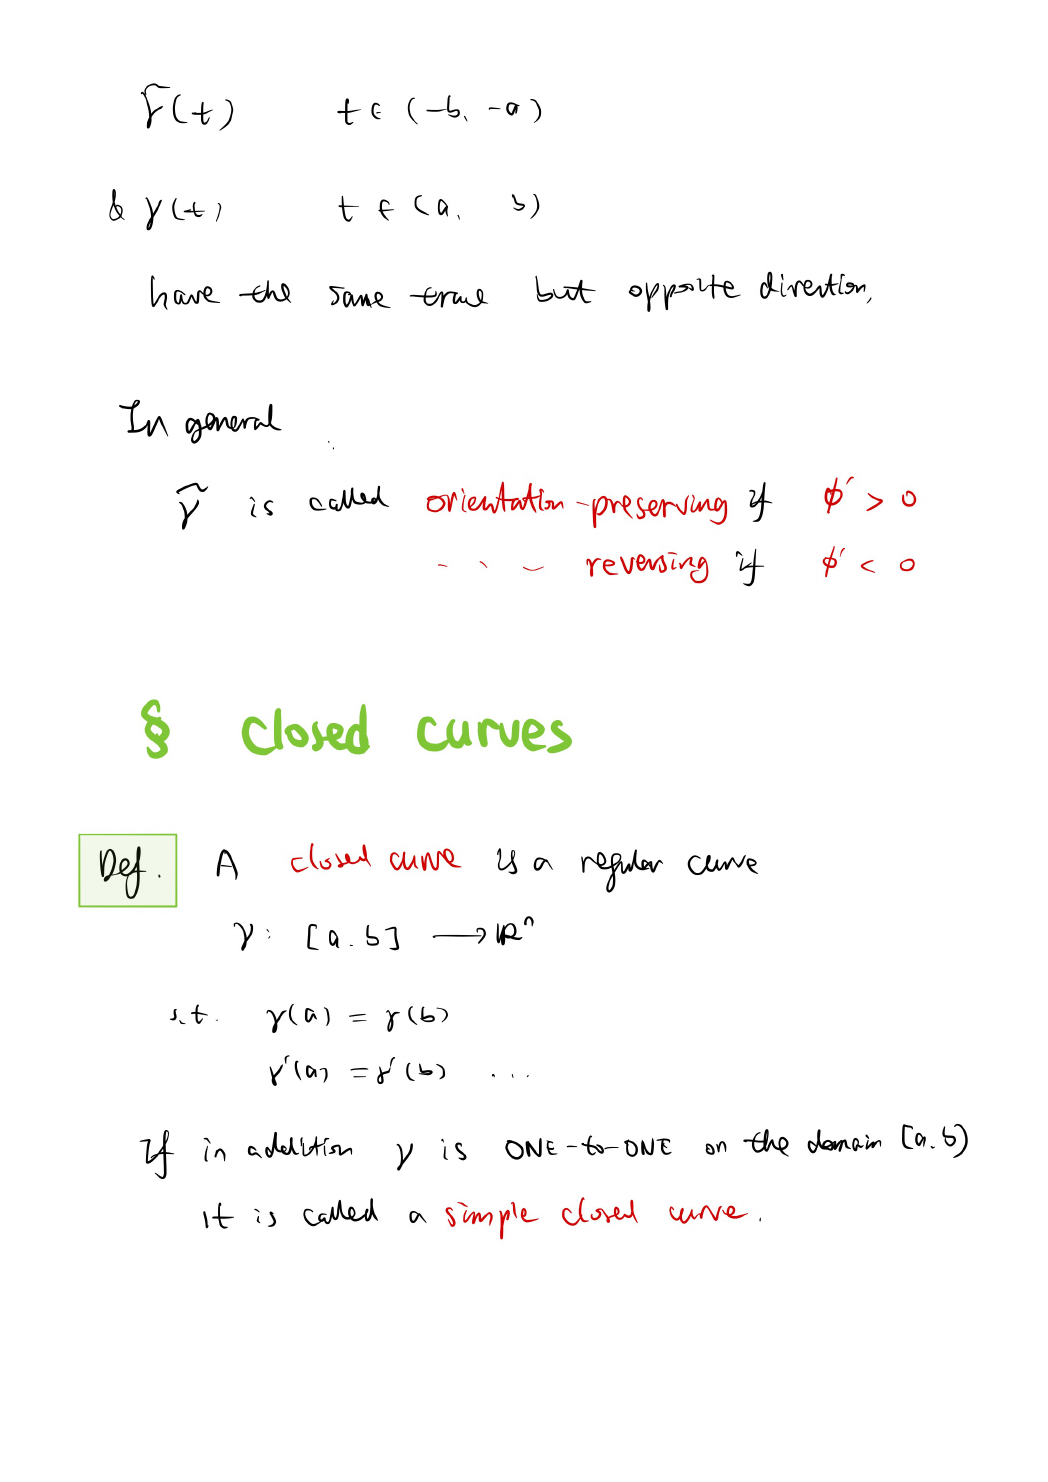 γ̃(t) t ∈ (-b, -a)
& γ(t) t ∈ (a, b)
have the same trace but opposite direction,
In general
γ̃ is called orientation-preserving if ϕ' > 0
- - - reversing if ϕ' < 0
§ closed curves
Def. A closed curve is a regular curve
γ: [a.b] ⟶ ℝⁿ
s.t. γ(a) = γ(b)
γ'(a) = γ'(b) ...
If in addition γ is ONE-to-ONE on the domain [a.b)
it is called a simple closed curve.